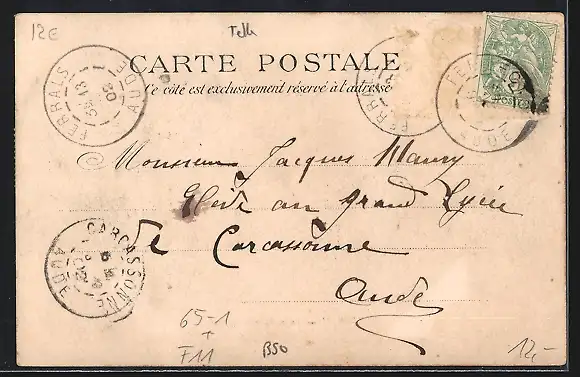 12€
Telk
CARTE POSTALE
Ce côté est exclusivement réservé à l'adresse
FERRALS
13
03
AUDE
FERRALS
AUDE
Monsieur Jacques Maury
Elève au grand Lycée
de Carcassonne
Aude
CARCASSONNE
AUDE
65-1
+
F11
B50
12,-